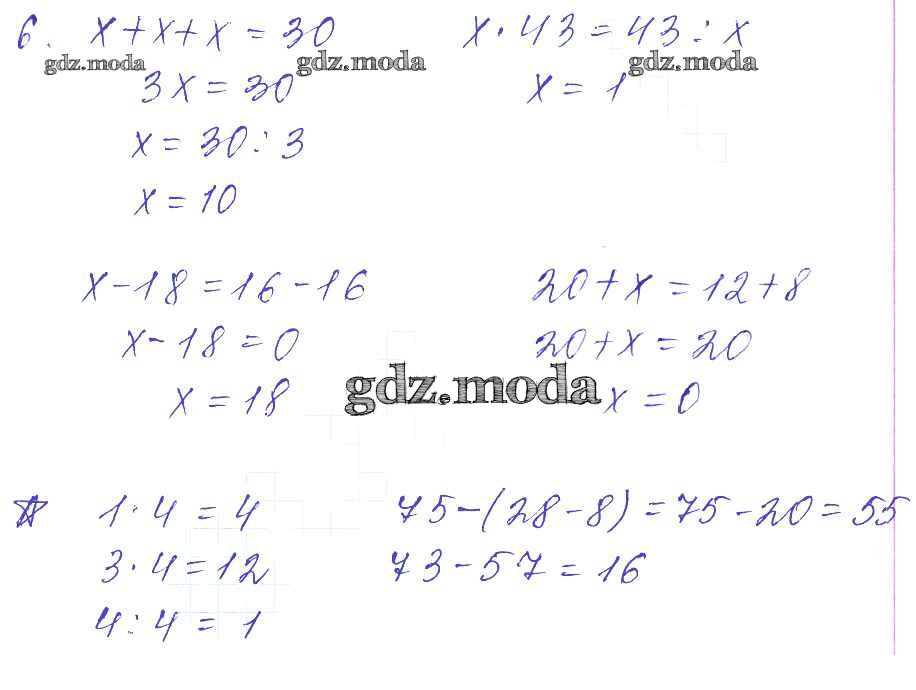 6. x + x + x = 30    x · 43 = 43 : x
gdz.moda    gdz.moda    gdz.moda
3x = 30    x = 1
x = 30 : 3
x = 10
x - 18 = 16 - 16    20 + x = 12 + 8
x - 18 = 0    20 + x = 20
x = 18    gdz.moda    x = 0
☆ 1 · 4 = 4    75 - (28 - 8) = 75 - 20 = 55
3 · 4 = 12    73 - 57 = 16
4 : 4 = 1